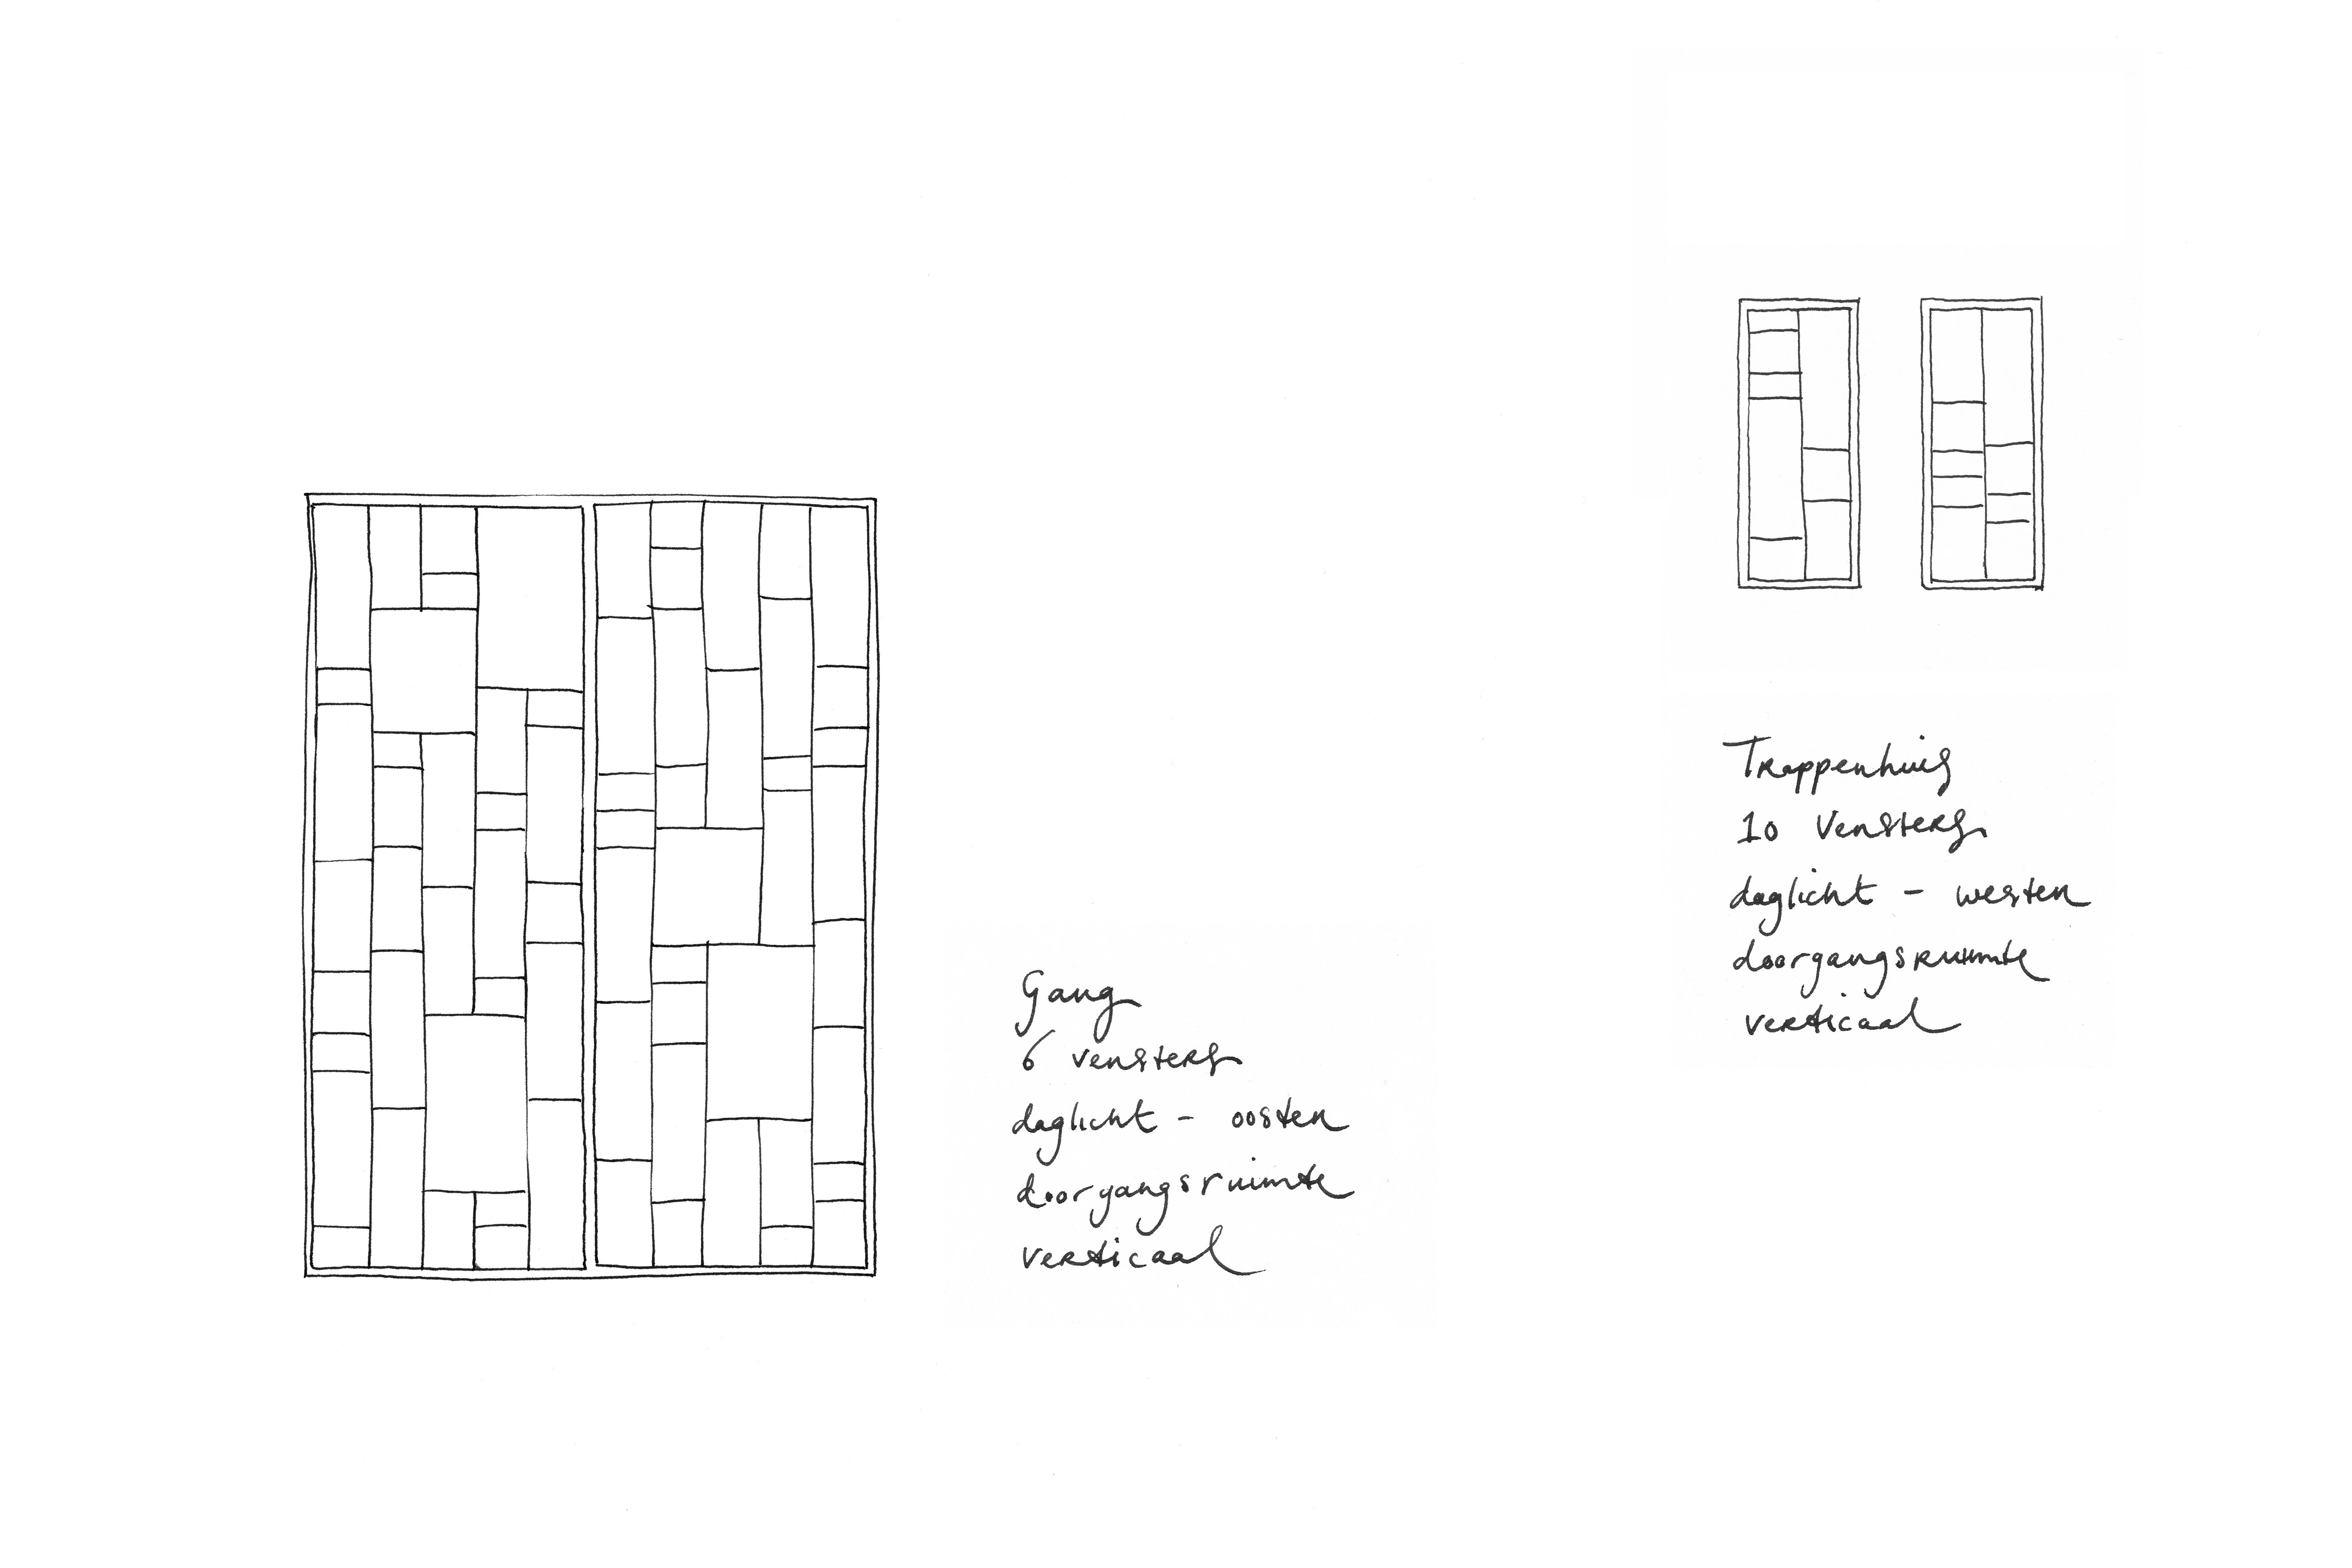 Gang
6 vensters
daglicht - oosten
doorgangsruimte
verticaal
Trappenhuis
10 Vensters
daglicht - westen
doorgangsruimte
verticaal